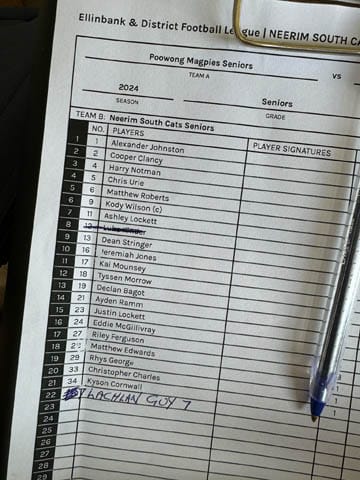 Ellinbank & District Football League | NEERIM SOUTH CA
Poowong Magpies Seniors
VS
TEAM A
2024
Seniors
SEASON
GRADE
TEAM B: Neerim South Cats Seniors
NO. PLAYERS PLAYER SIGNATURES
1 1 Alexander Johnston
2 2 Cooper Clancy
3 4 Harry Notman
4 5 Chris Urie
5 6 Matthew Roberts
6 9 Kody Wilson (c)
7 11 Ashley Lockett
8 12 Luke
9 13 Dean Stringer
10 16 Jeremiah Jones
11 17 Kai Mounsey
12 18 Tyssen Morrow
13 19 Declan Bagot
14 21 Ayden Ramm
15 23 Justin Lockett
16 24 Eddie McGillivray
17 27 Riley Ferguson
18 Matthew Edwards
19 29 Rhys George
20 33 Christopher Charles
21 34 Kyson Cornwall
22 LACHLAN GUY 7
23
24
25
26
27
28
29